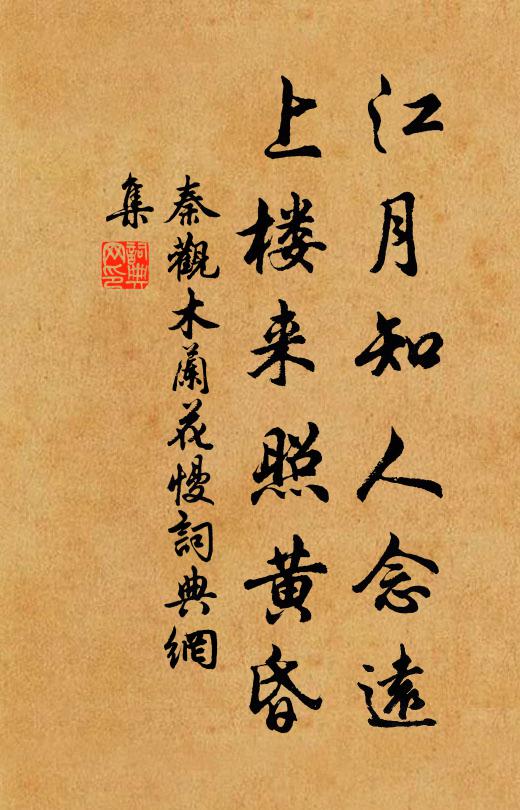 江月知人念遠
上楼来照黄昏
秦觀木蘭花慢詞典網
集
詞典網印